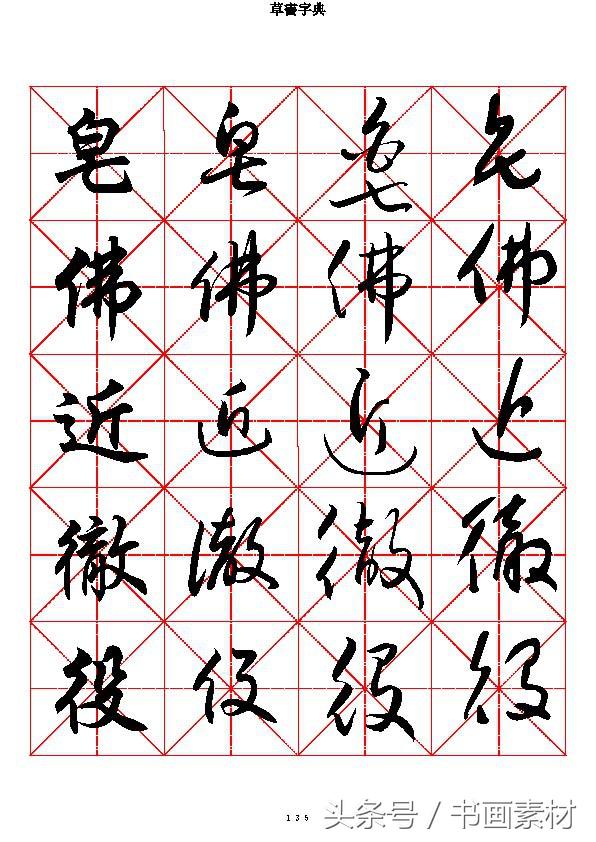 草書字典
皂 皂 皂 皂
佛 佛 佛 佛
近 近 近 近
徹 徹 徹 徹
役 役 役 役
135
头条号 / 书画素材